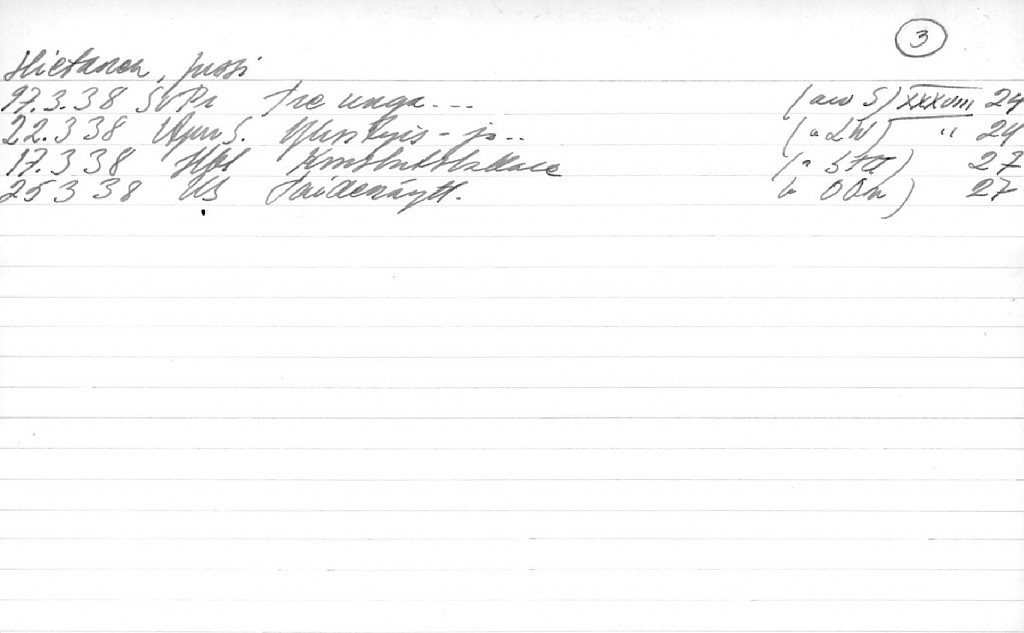 3
Hietanen, Jussi
17.3.38 SvPr Tre unga... (arv S) XXXVIII 24
22.3 38 Uusi S. Yksityis- ja.. (" LW) " 24
17.3 38 Hbl (" STH) 27
25 3 38 US Taidenäytt. (" OOn) 27